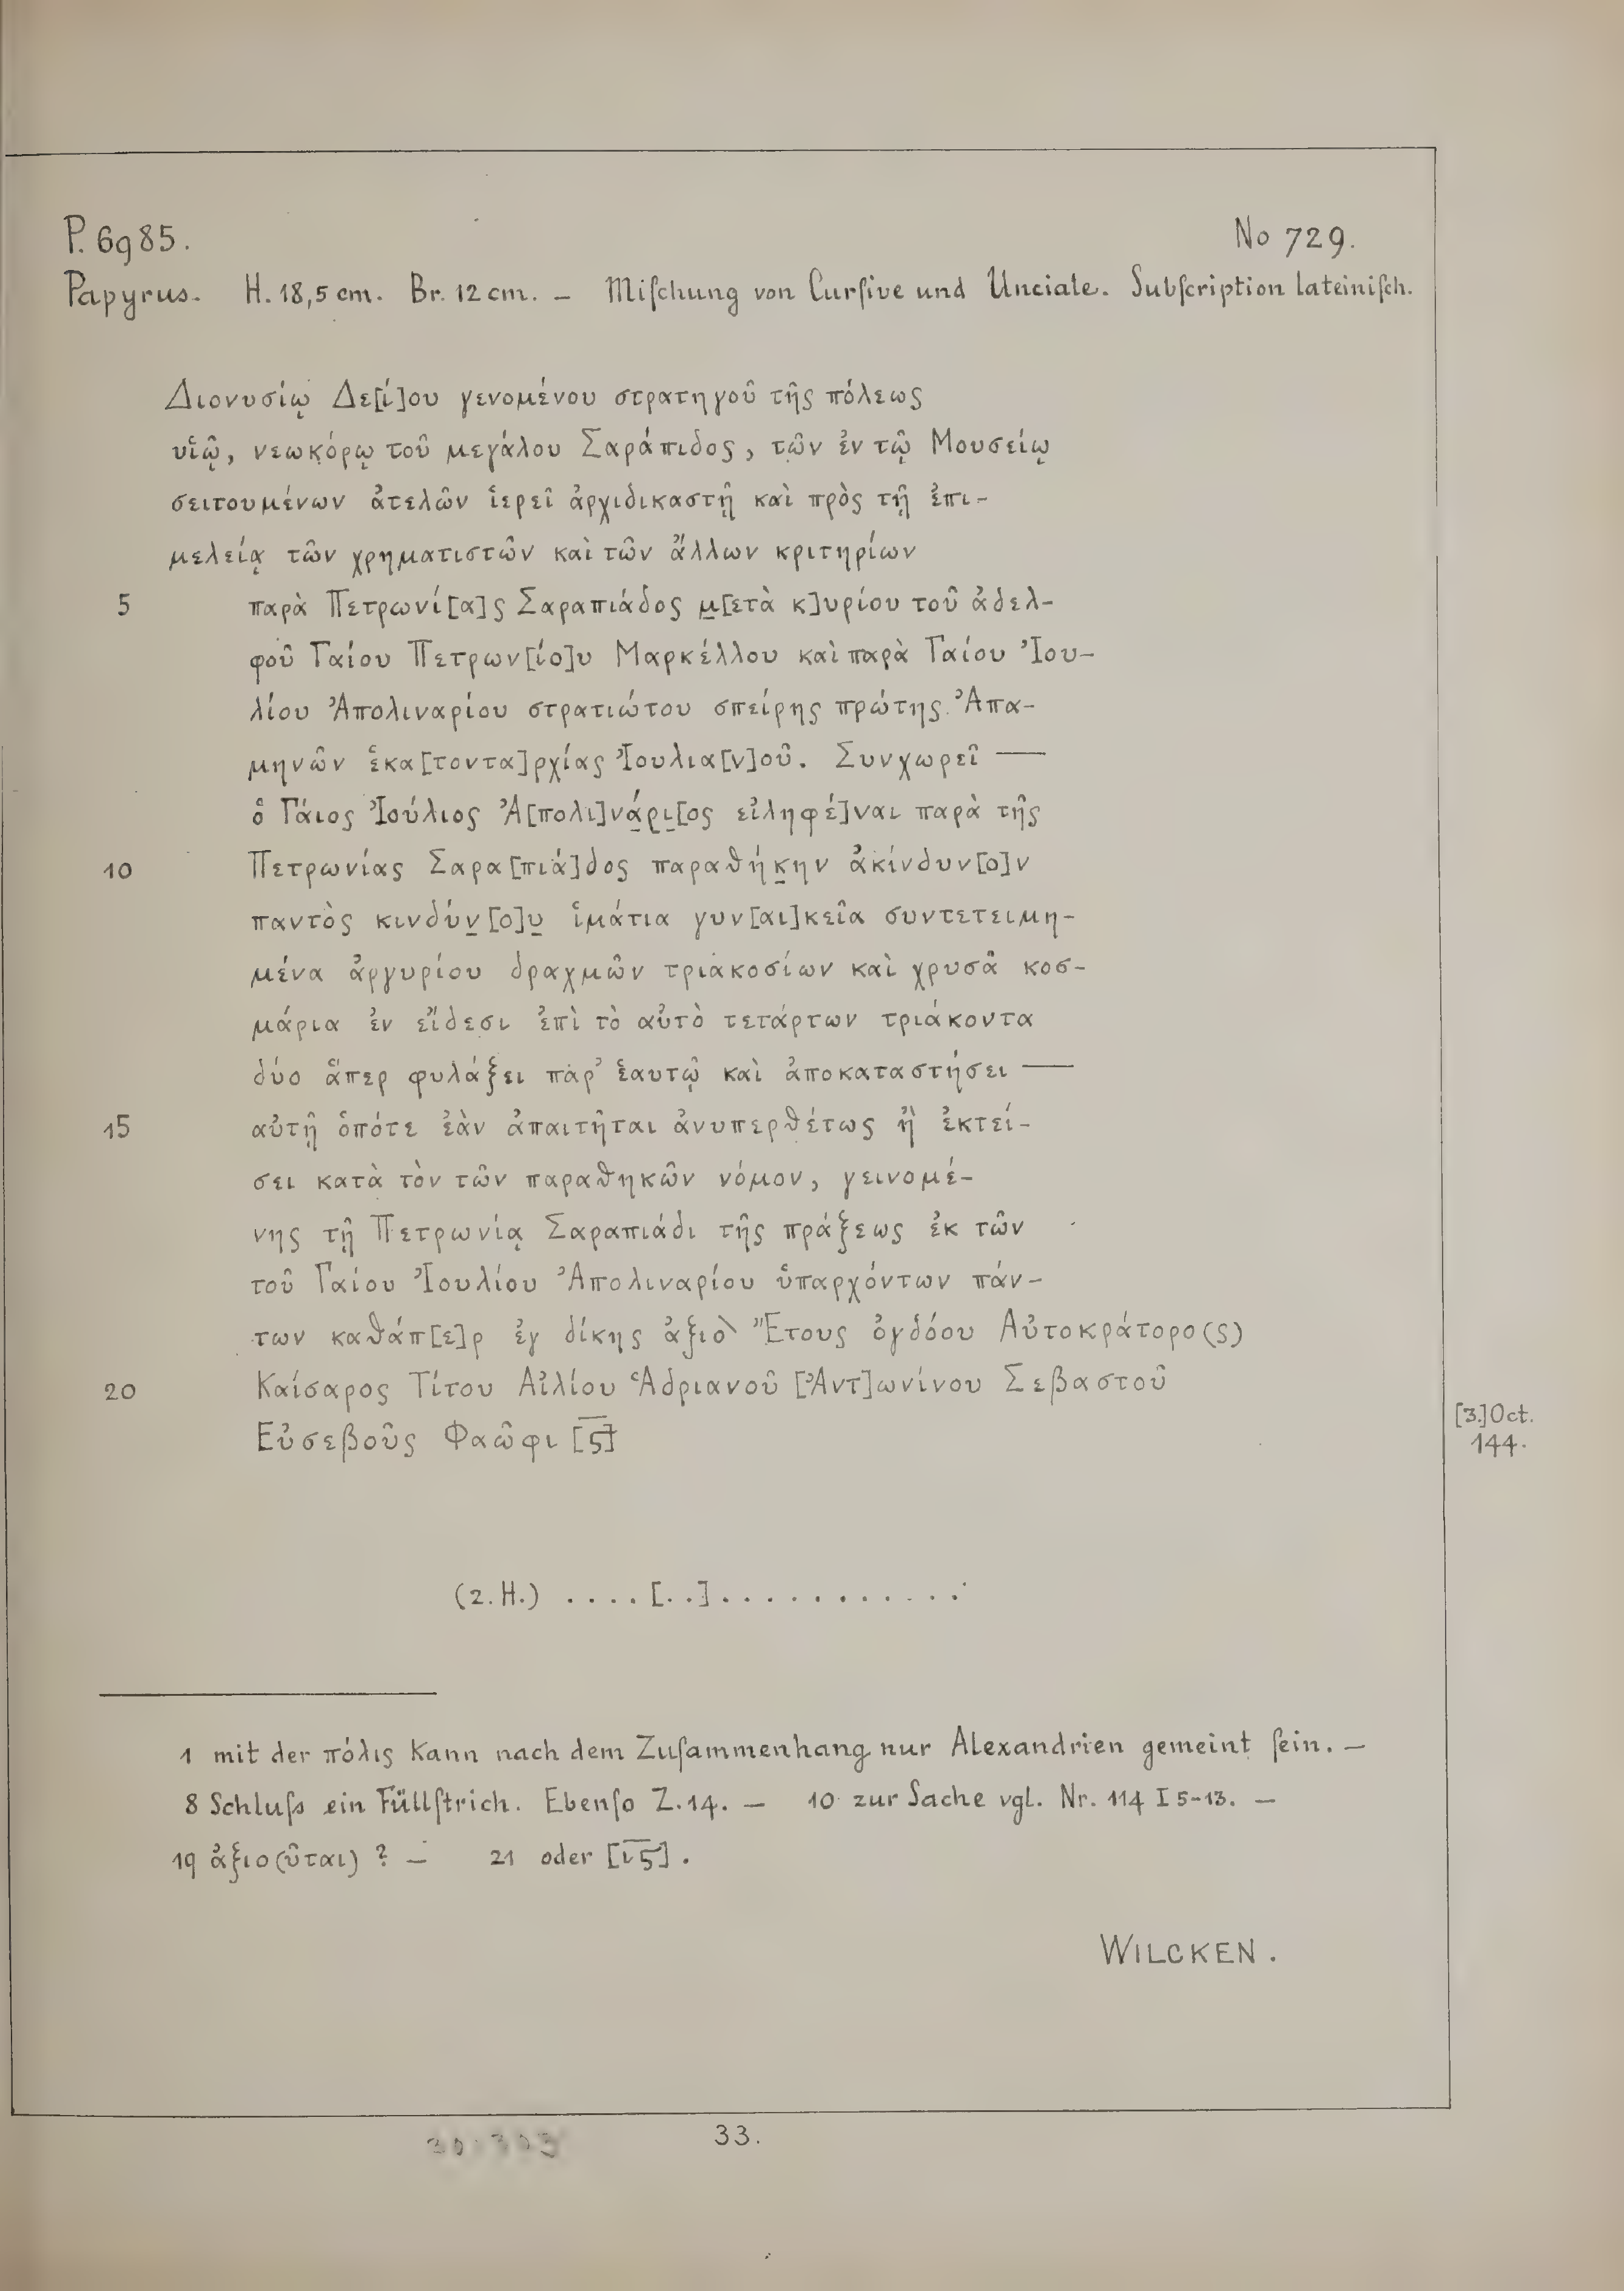 P. 6985.
No 729.
Papyrus. H. 18,5 cm. Br. 12 cm. – Miſchung von Curſive und Unciale. Subſcription lateiniſch.
Διονυσίῳ Δε[ί]ου γενομένου στρατηγοῦ τῆς πόλεως
υἱῷ, νεωκόρῳ τοῦ μεγάλου Σαράπιδος, τῶν ἐν τῷ Μουσείῳ
σειτουμένων ἀτελῶν ἱερεῖ ἀρχιδικαστῇ καὶ πρὸς τῇ ἐπι-
μελείᾳ τῶν χρηματιστῶν καὶ τῶν ἄλλων κριτηρίων
5 παρὰ Πετρωνί[α]ς Σαραπιάδος μ̲[ετὰ κ]υρίου τοῦ ἀδελ-
φοῦ Γαίου Πετρων[ίο]υ Μαρκέλλου καὶ παρὰ Γαίου Ἰου-
λίου Ἀπολιναρίου στρατιώτου σπείρης πρώτης Ἀπα-
μηνῶν ἑκα[τοντα]ρχίας Ἰουλια[ν]οῦ. Συνχωρεῖ —
ὁ Γάιος Ἰούλιος Ἀ[πολι]νά̲ρι̲[ος εἰληφέ]ναι παρὰ τῆς
10 Πετρωνίας Σαρα[πιά]δος παραθήκ̲ην ἀκίνδυν[ο]ν
παντὸς κινδύν̲[ο]υ̲ ἱμάτια γυν[αι]κεῖα συντετειμη-
μένα ἀργυρίου δραχμῶν τριακοσίων καὶ χρυσᾶ κοσ-
μάρια ἐν εἴδεσι ἐπὶ τὸ αὐτὸ τετάρτων τριάκοντα
δύο ἅπερ φυλάξει παρ’ ἑαυτῷ καὶ ἀποκαταστήσει —
15 αὐτῇ ὁπότε ἐὰν ἀπαιτῆται ἀνυπερθέτως ἢ ἐκτεί-
σει κατὰ τὸν τῶν παραθηκῶν νόμον, γεινομέ-
νης τῇ Πετρωνίᾳ Σαραπιάδι τῆς πράξεως ἐκ τῶν
τοῦ Γαίου Ἰουλίου Ἀπολιναρίου ὑπαρχόντων πάν-
των καθάπ[ε]ρ ἐγ δίκης ἀξιο\ Ἔτους ὀγδόου Αὐτοκράτορο(ς)
20 Καίσαρος Τίτου Αἰλίου Ἁδριανοῦ [Ἀντ]ωνίνου Σεβαστοῦ
Εὐσεβοῦς Φαῶφι [ϛ̅]
[3.] Oct.
144.
(2. H.) ....[..]............
1 mit der πόλις kann nach dem Zuſammenhang nur Alexandrien gemeint ſein. –
8 Schluſs ein Füllſtrich. Ebenſo Z. 14. – 10 zur Sache vgl. Nr. 114 I 5-13. –
19 ἀξιο(ῦται) ? – 21 oder [ι̅ϛ̅].
WILCKEN.
33.